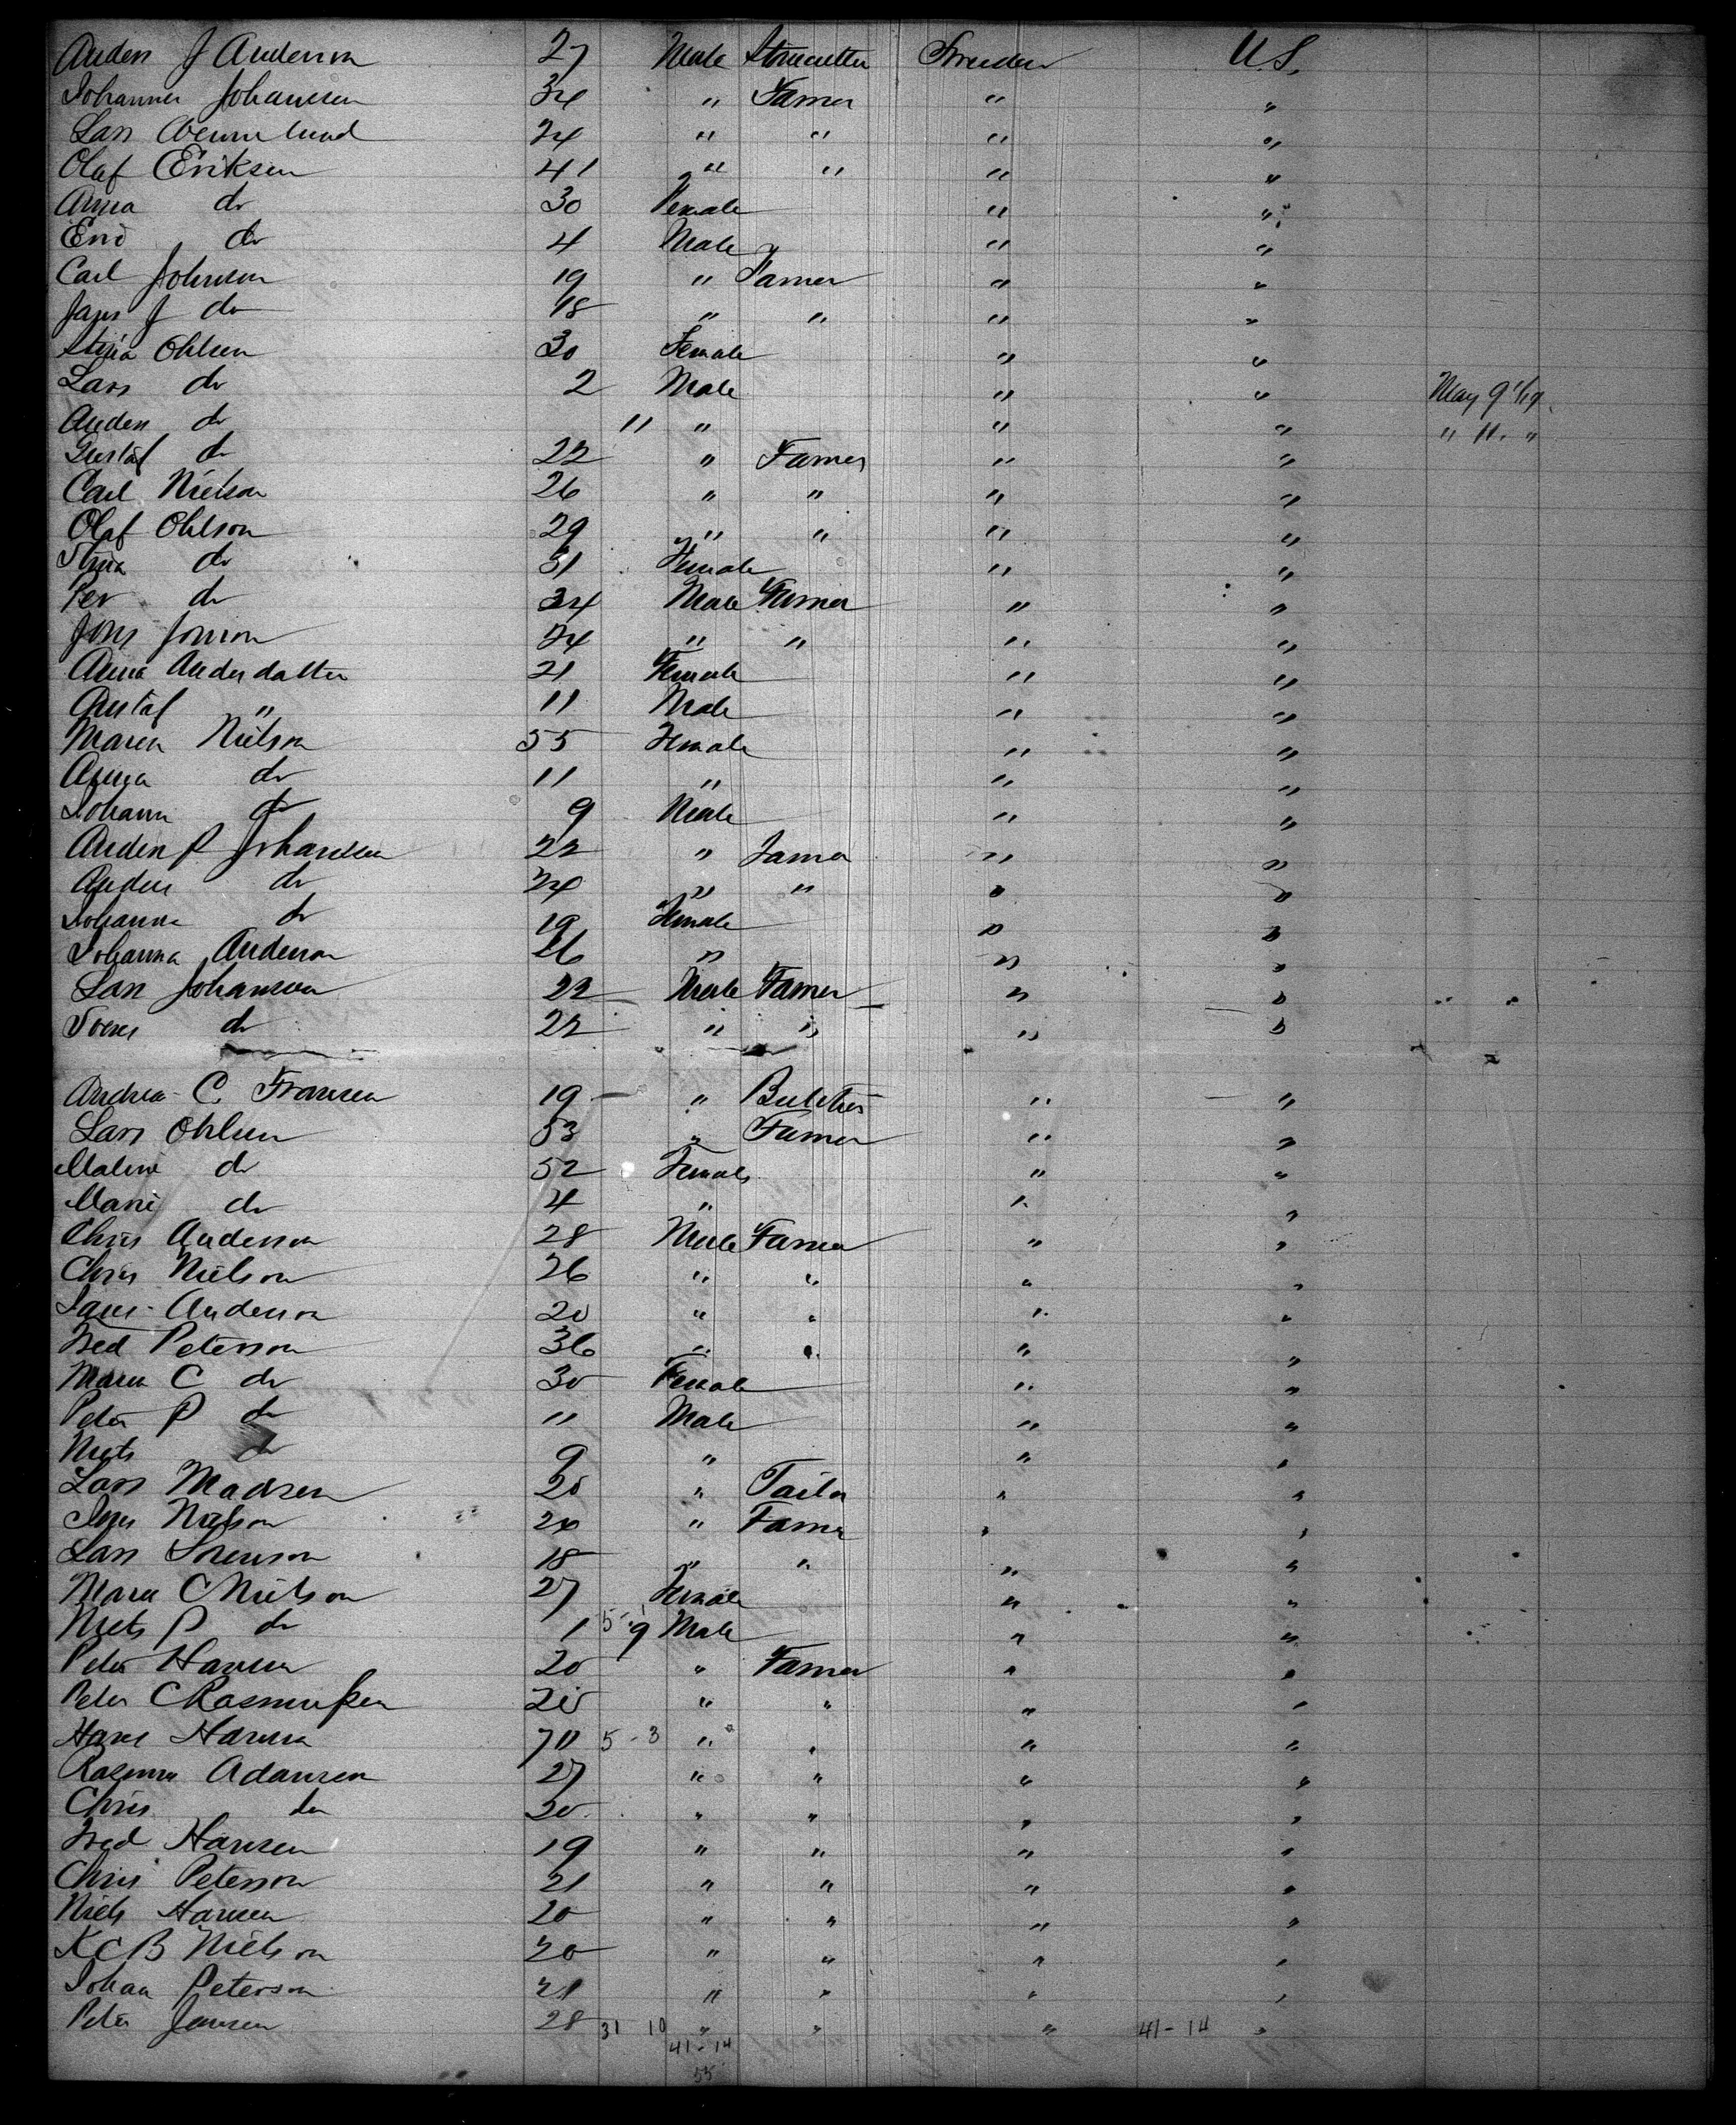 Anders J Anderson 27 Male Sweden U.S.
Johannes Johansson 34 " Farmer " "
Lars 24 " " " "
Olaf Eriksen 41 " " " "
Anna do 30 Female " "
Eric do 4 Male " "
Carl Johnson 19 " Farmer " "
Jans J do 18 " " " "
Stina Ohlsen 30 Female " "
Lars do 2 Male " " May 9
Anders do " " " " " 11. "
Gustaf do 22 " Farmer " "
Carl Nielson 26 " " " "
Olaf Ohlson 29 " " " "
Stina do 31 Female " "
Per do 34 Male Farmer " "
Jons Jonson 24 " " " "
Anna Andersdatter 21 Female " "
Gustaf " 11 Male " "
Maren Nielson 55 Female " "
Anna do 11 " " "
Johann do 9 Male " "
Anders P Johansen 22 " Farmer " "
Anders do 24 " " " "
Johanna do 19 Female " "
Johanna Anderson 26 " " "
Lars Johanson 22 Male Farmer " "
do 22 " " " "
Andrea C. Fransen 19 " Butcher " "
Lars Ohlsen 53 " Farmer " "
Malene do 52 Female " "
Marie do 4 " " "
Chris Anderson 28 Male Farmer " "
Chris Nielson 26 " " " "
Jans Anderson 20 " " " "
Fred Peterson 36 " " " "
Maren C do 30 Female " "
Peter P do 11 Male " "
Niels do 9 " " "
Lars Madsen 20 " Tailor " "
Nielson 24 " Farmer " "
Lars Sorenson 18 " " " "
Maren C Nielson 27 Female " "
Niels P do 1 5-9 Male " "
Peter Hansen 20 " Farmer " "
Peter C Rasmussen 20 " " " "
Hans Hansen 70 5-3 " " " "
Rasmus Adamsen 27 " " " "
Chris do 30 " " " "
Fred Hansen 19 " " " "
Chris Peterson 21 " " " "
Niels Hansen 20 " " " "
K C B Nielson 20 " " " "
Johan Peterson 21 " " " "
Peter Jansen 28 31 10 " " " 41-14 "
41-14
55